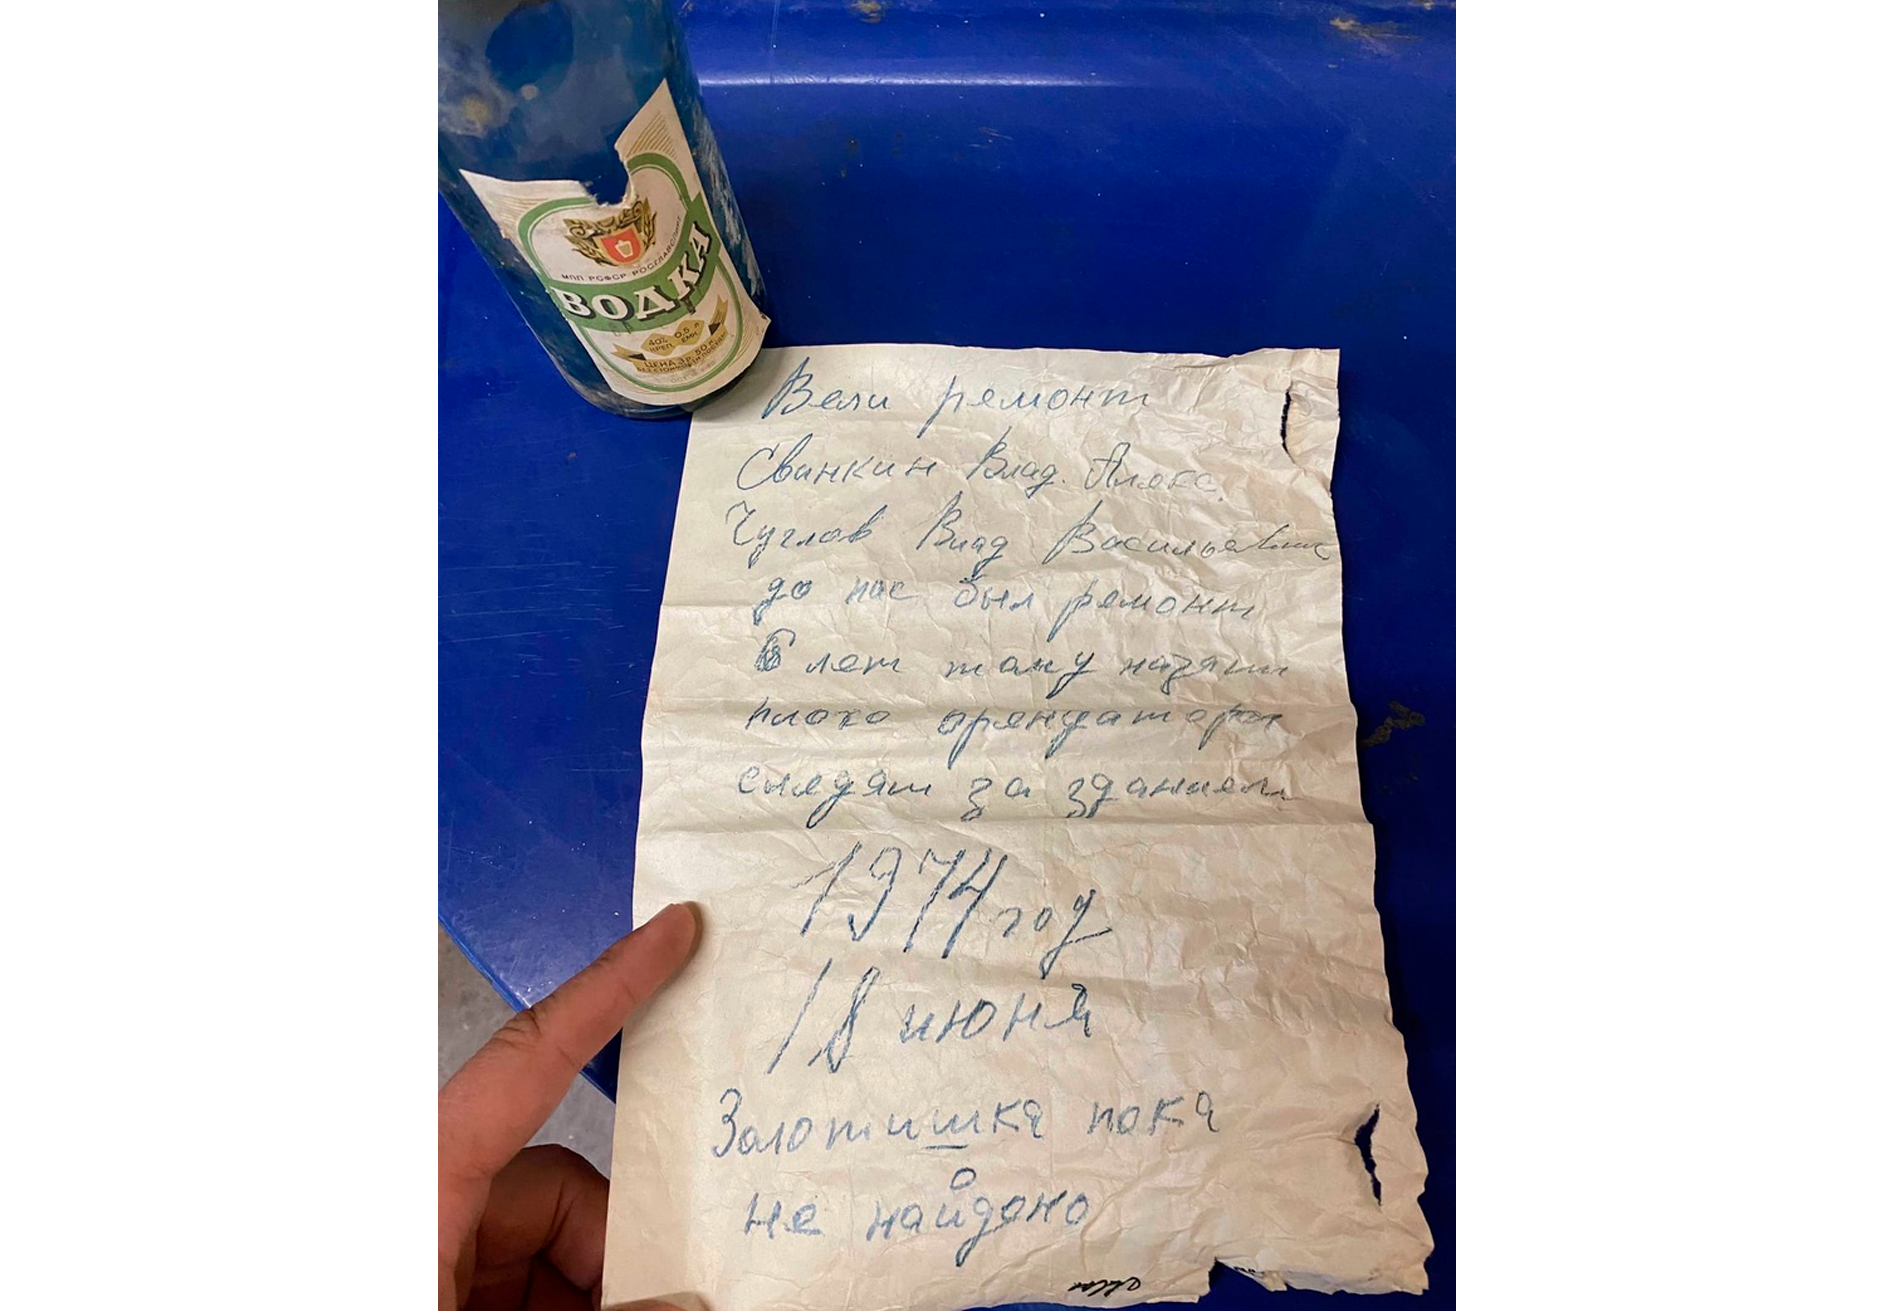 МПП РСФСР РОСГЛАВСПИРТ
ВОДКА
40% 0,5 л
КРЕП. ЕМК.
ЦЕНА 3 р. 50 к.
Вели ремонт
Свинкин Влад. Алекс.
Чуглов Влад Васильевич
до нас был ремонт
6 лет тому назят
плохо орендаторы
следят за зданием
1974 год
18 июня
Золотишка пока
не найдоно